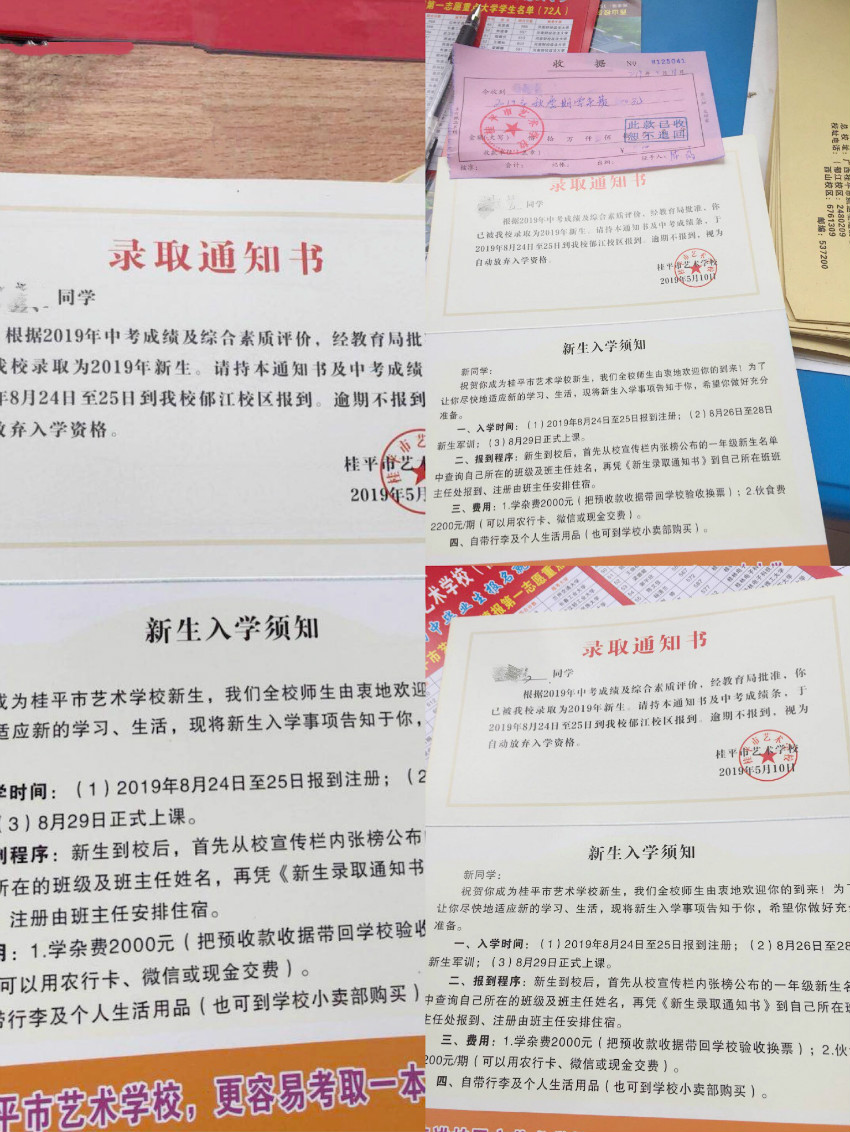 录取通知书
同学
根据2019年中考成绩及综合素质评价，经教育局批
我校录取为2019年新生。请持本通知书及中考成绩
年8月24日至25日到我校郁江校区报到。逾期不报到
放弃入学资格。
桂平市艺
2019年5月
新生入学须知
成为桂平市艺术学校新生，我们全校师生由衷地欢迎
适应新的学习、生活，现将新生入学事项告知于你，
学时间：（1）2019年8月24日至25日报到注册；（2
（3）8月29日正式上课。
到程序：新生到校后，首先从校宣传栏内张榜公布
所在的班级及班主任姓名，再凭《新生录取通知书
注册由班主任安排住宿。
用：1.学杂费2000元（把预收款收据带回学校验收
可以用农行卡、微信或现金交费）。
带行李及个人生活用品（也可到学校小卖部购买）
平市艺术学校，更容易考取一本
第一志愿重点大学学生名单（72人）
收据 No 0125041
今收到
此款已收
概不退回
录取通知书
同学
根据2019年中考成绩及综合素质评价，经教育局批准，你
已被我校录取为2019年新生。请持本通知书及中考成绩条，于
2019年8月24日至25日到我校郁江校区报到。逾期不报到，视为
自动放弃入学资格。
桂平市艺术学校
2019年5月10日
新生入学须知
新同学：
祝贺你成为桂平市艺术学校新生，我们全校师生由衷地欢迎你的到来！为了
让你尽快地适应新的学习、生活，现将新生入学事项告知于你，希望你做好充分
准备。
一、入学时间：（1）2019年8月24日至25日报到注册；（2）8月26日至28日
新生军训；（3）8月29日正式上课。
二、报到程序：新生到校后，首先从校宣传栏内张榜公布的一年级新生名单
中查询自己所在的班级及班主任姓名，再凭《新生录取通知书》到自己所在班班
主任处报到、注册由班主任安排住宿。
三、费用：1.学杂费2000元（把预收款收据带回学校验收换票）；2.伙食费
2200元/期（可以用农行卡、微信或现金交费）。
四、自带行李及个人生活用品（也可到学校小卖部购买）。
校址电话：（郁江校区：2480209
西山校区：6761309
邮编：537200
录取通知书
同学
根据2019年中考成绩及综合素质评价，经教育局批准，你
已被我校录取为2019年新生。请持本通知书及中考成绩条，于
2019年8月24日至25日到我校郁江校区报到。逾期不报到，视为
自动放弃入学资格。
桂平市艺术学校
2019年5月10日
新生入学须知
新同学：
祝贺你成为桂平市艺术学校新生，我们全校师生由衷地欢迎你的到来！为了
让你尽快地适应新的学习、生活，现将新生入学事项告知于你，希望你做好充分
准备。
一、入学时间：（1）2019年8月24日至25日报到注册；（2）8月26日至28
新生军训；（3）8月29日正式上课。
二、报到程序：新生到校后，首先从校宣传栏内张榜公布的一年级新生名
中查询自己所在的班级及班主任姓名，再凭《新生录取通知书》到自己所在班
主任处报到、注册由班主任安排住宿。
三、费用：1.学杂费2000元（把预收款收据带回学校验收换票）；2.伙
200元/期（可以用农行卡、微信或现金交费）。
四、自带行李及个人生活用品（也可到学校小卖部购买）。